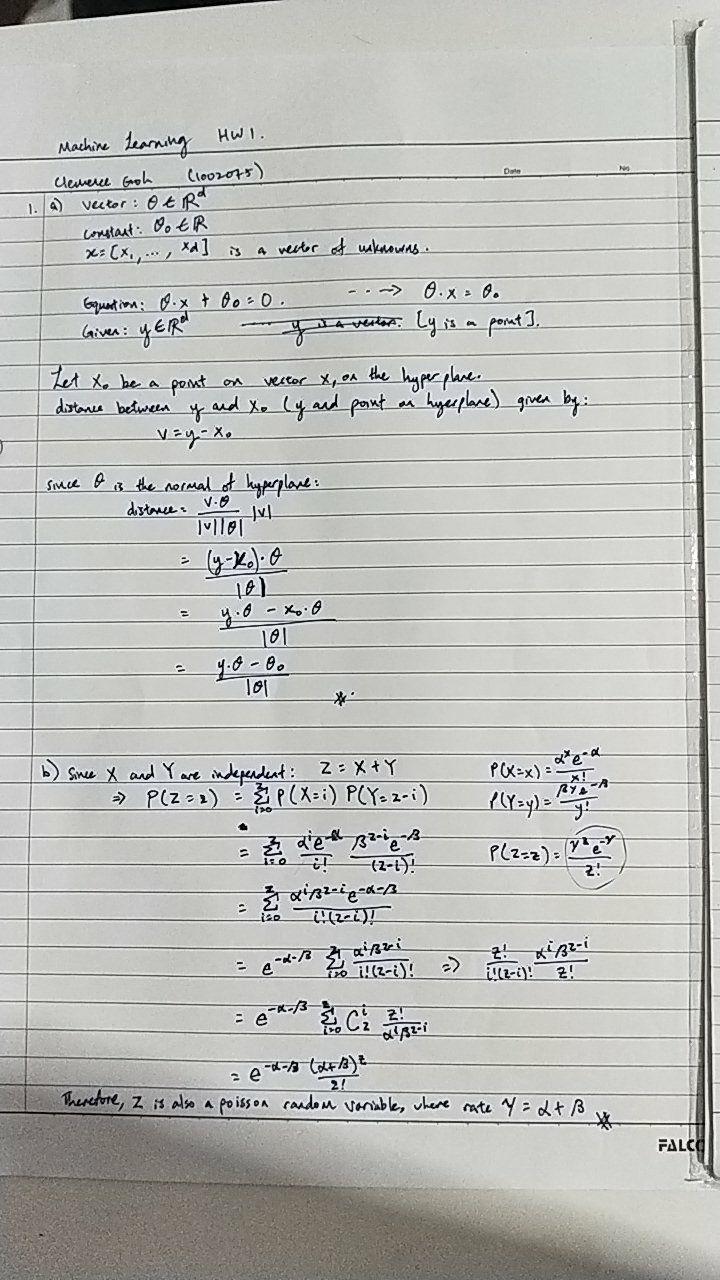 Machine Learning HW1.
Date No
Clemence Goh (1002075)
1. a) vector: θ ∈ ℝ^d
constant: θ₀ ∈ ℝ
x = [x₁, ..., x_d] is a vector of unknowns.
Equation: θ.x + θ₀ = 0. ---> θ.x = θ₀
Given: y ∈ ℝ^d y is a vector. [y is a point].
Let x₀ be a point on vector x, on the hyperplane.
distance between y and x₀ (y and point on hyerplane) given by:
v = y - x₀
since θ is the normal of hyperplane:
distance = v.θ / |v||θ| |v|
= (y-x₀).θ / |θ|
= y.θ - x₀.θ / |θ|
= y.θ - θ₀ / |θ|
b) Since X and Y are independent: Z = X + Y P(X=x) = α^x e^-α / x!
=> P(Z=z) = Σ_{i=0}^z P(X=i) P(Y=z-i) P(Y=y) = β^y e^-β / y!
= Σ_{i=0}^z α^i e^-α / i! β^{z-i} e^-β / (z-i)! P(Z=z) = γ^z e^-γ / z!
= Σ_{i=0}^z α^i β^{z-i} e^{-α-β} / i!(z-i)!
= e^{-α-β} Σ_{i=0}^z α^i β^{z-i} / i!(z-i)! => z! / i!(z-i)! α^i β^{z-i} / z!
= e^{-α-β} Σ_{i=0}^z C_z^i z! / α^i β^{z-i}
= e^{-α-β} (α+β)^z / z!
Therefore, Z is also a poisson random variable, where rate γ = α + β
FALC